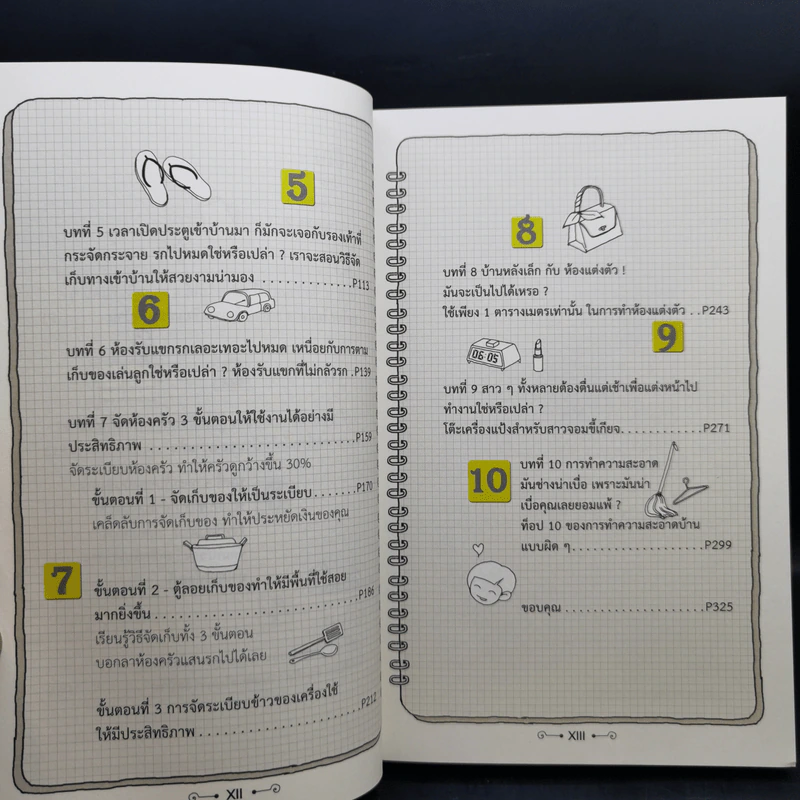 5
บทที่ 5 เวลาเปิดประตูเข้าบ้านมา ก็มักจะเจอกับรองเท้าที่
กระจัดกระจาย รกไปหมดใช่หรือเปล่า ? เราจะสอนวิธีจัด
เก็บทางเข้าบ้านให้สวยงามน่ามอง . . . . . . . . . . . . .P113
6
บทที่ 6 ห้องรับแขกรกเลอะเทอะไปหมด เหนื่อยกับการตาม
เก็บของเล่นลูกใช่หรือเปล่า ? ห้องรับแขกที่ไม่กลัวรก .P139
บทที่ 7 จัดห้องครัว 3 ขั้นตอนให้ใช้งานได้อย่างมี
ประสิทธิภาพ . . . . . . . . . . . . . . . . . . . . . . . . . .P159
จัดระเบียบห้องครัว ทำให้ครัวดูกว้างขึ้น 30%
ขั้นตอนที่ 1 - จัดเก็บของให้เป็นระเบียบ. . . . . . .P170
เคล็ดลับการจัดเก็บของ ทำให้ประหยัดเงินของคุณ
7
ขั้นตอนที่ 2 - ตู้ลอยเก็บของทำให้มีพื้นที่ใช้สอย
มากยิ่งขึ้น . . . . . . . . . . . . . . . . . . . . . . . . .P186
เรียนรู้วิธีจัดเก็บทั้ง 3 ขั้นตอน
บอกลาห้องครัวแสนรกไปได้เลย
ขั้นตอนที่ 3 การจัดระเบียบข้าวของเครื่องใช้
ให้มีประสิทธิภาพ . . . . . . . . . . . . . . . . . . . .P212
XII
8
บทที่ 8 บ้านหลังเล็ก กับ ห้องแต่งตัว !
มันจะเป็นไปได้เหรอ ?
ใช้เพียง 1 ตารางเมตรเท่านั้น ในการทำห้องแต่งตัว . .P243
9
06:05
บทที่ 9 สาว ๆ ทั้งหลายต้องตื่นแต่เช้าเพื่อแต่งหน้าไป
ทำงานใช่หรือเปล่า ?
โต๊ะเครื่องแป้งสำหรับสาวจอมขี้เกียจ. . . . . . . . . . . .P271
10
บทที่ 10 การทำความสะอาด
มันช่างน่าเบื่อ เพราะมันน่า
เบื่อคุณเลยยอมแพ้ ?
ท็อป 10 ของการทำความสะอาดบ้าน
แบบผิด ๆ. . . . . . . . . . . . . . . . . . .P299
ขอบคุณ . . . . . . . . . . . . . . . . . . . . . .P325
XIII